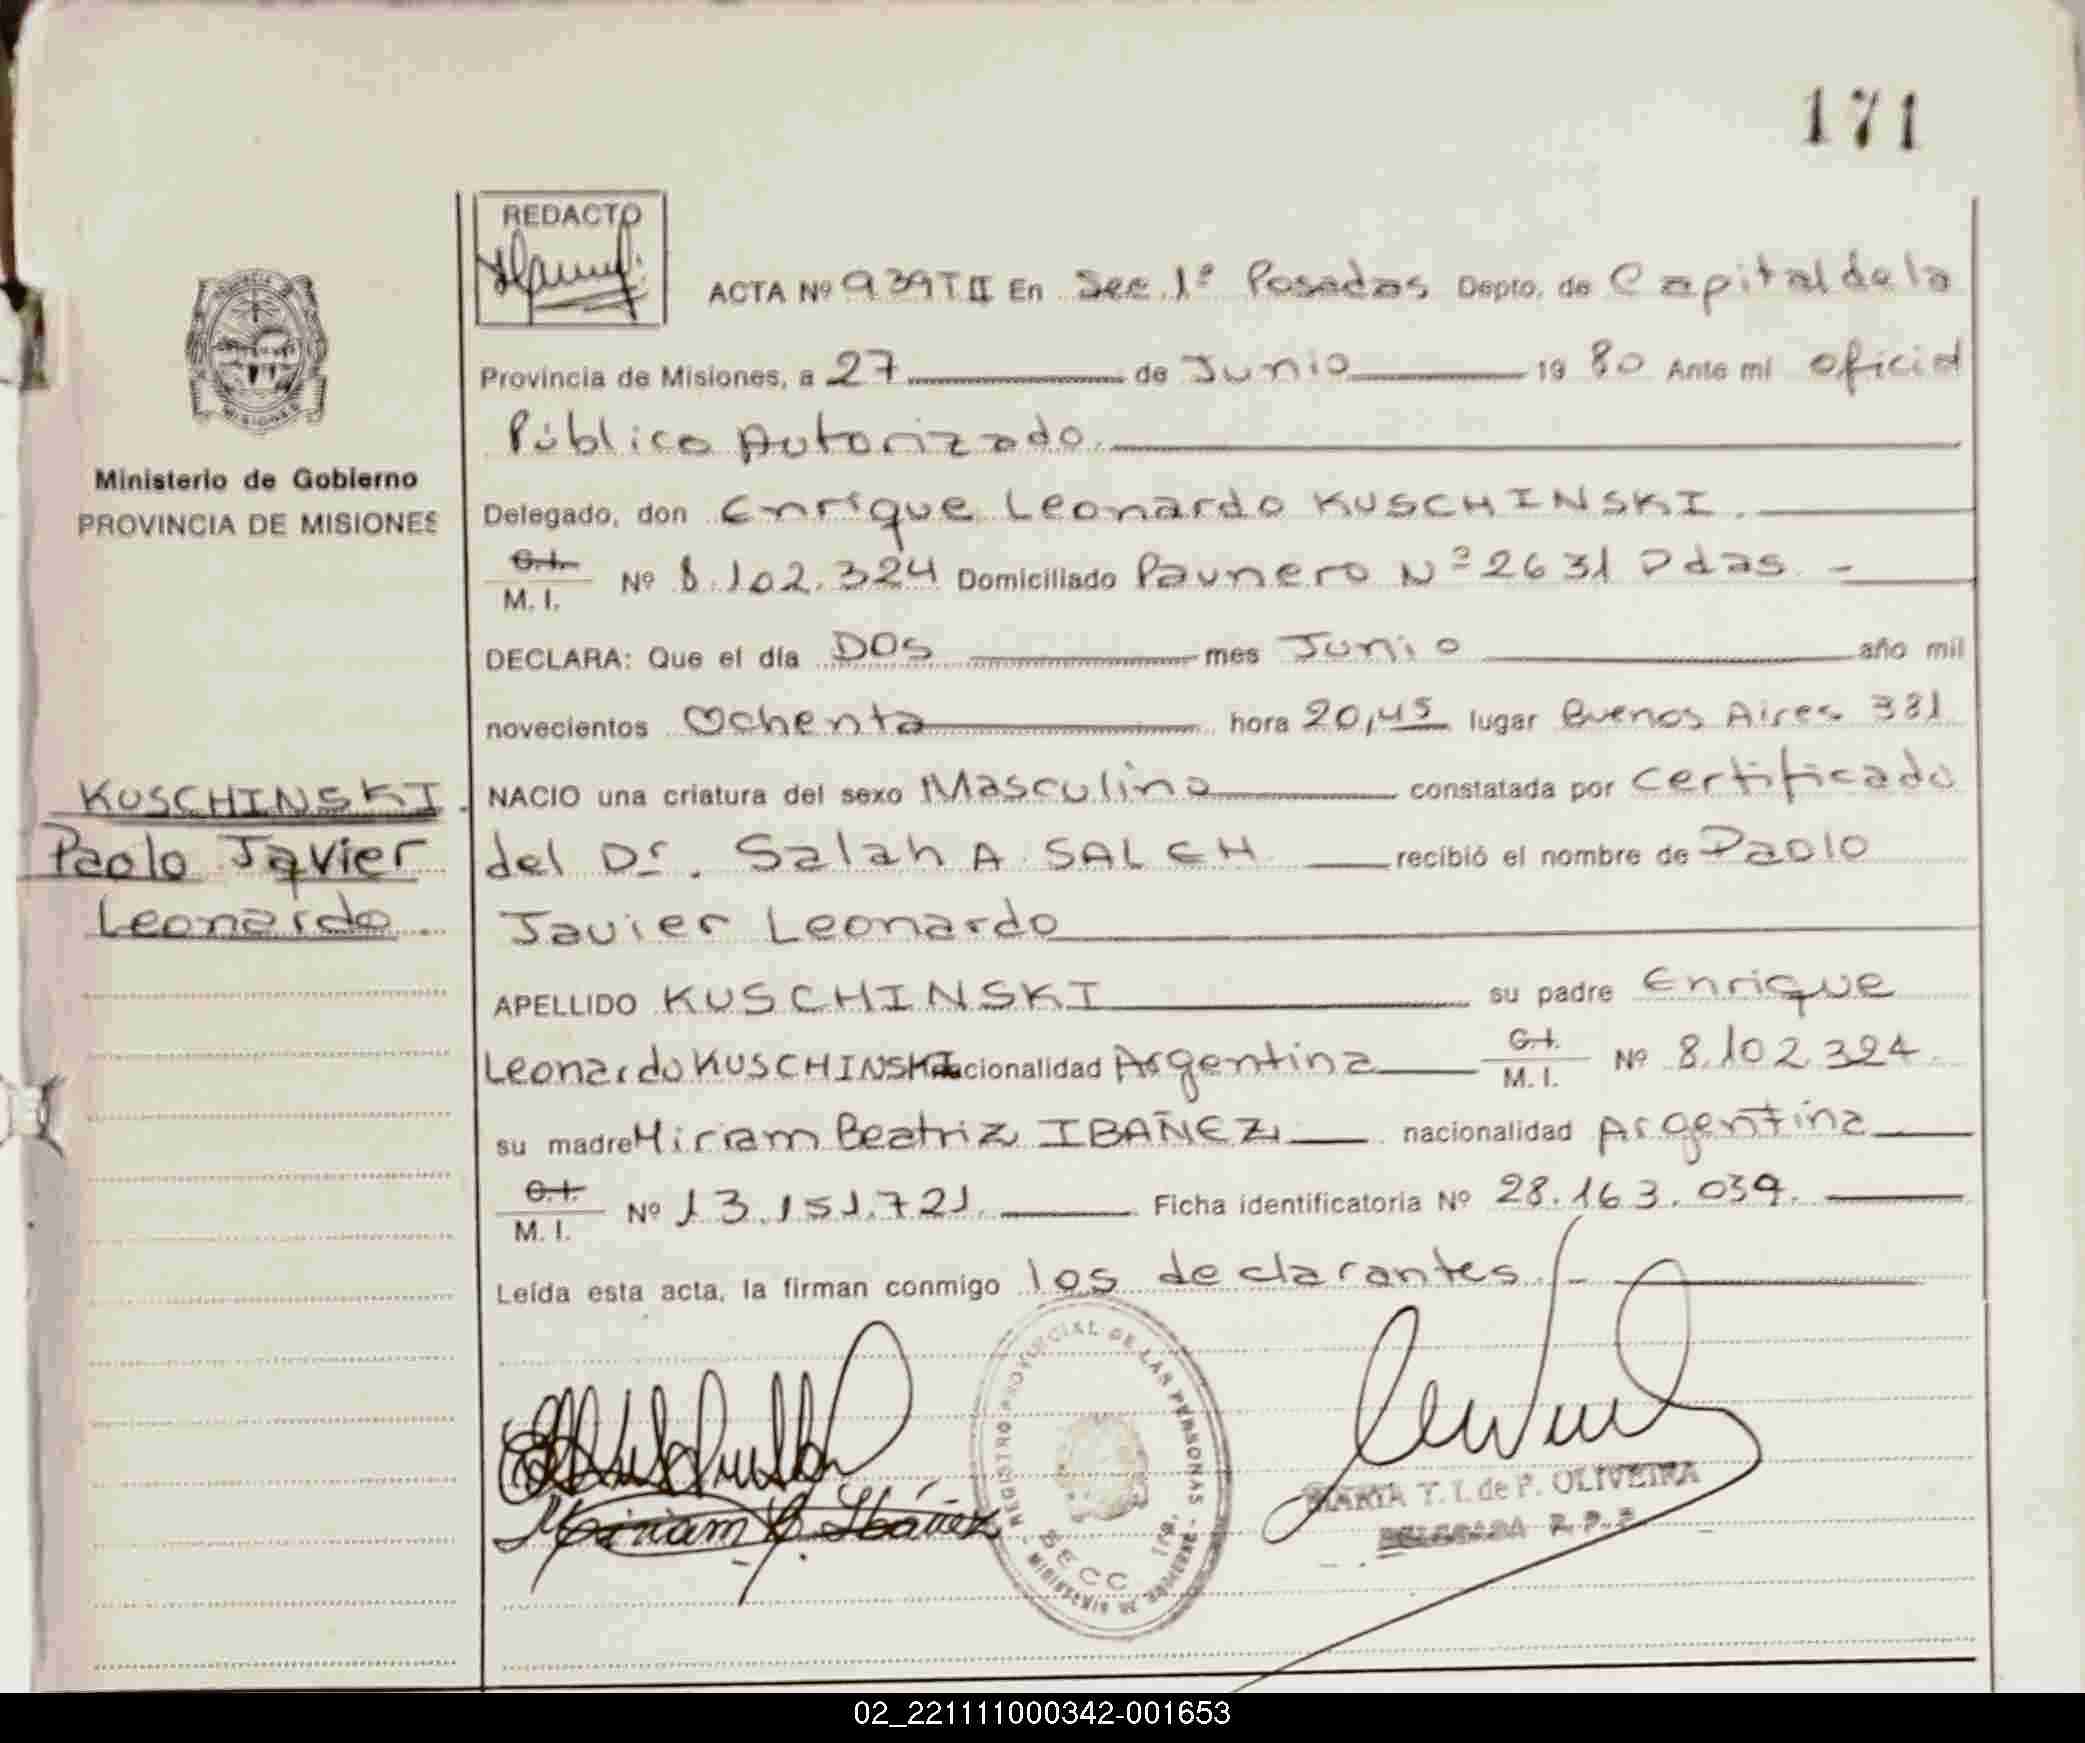 171
REDACTO
ACTA Nº 939 T II En Sec. 1ª Posadas Depto. de Capital de la
Provincia de Misiones, a 27 de Junio 19 80 Ante mi oficial
Público Autorizado.
Ministerio de Gobierno
PROVINCIA DE MISIONES
Delegado, don Enrique Leonardo KUSCHINSKI.
C.I.
M. I. Nº 8.102.324 Domiciliado Paunero Nº 2631 Pdas -
DECLARA: Que el día DOS mes Junio año mil
novecientos Ochenta hora 20,45 lugar Buenos Aires 381
KUSCHINSKI.
Paolo Javier
Leonardo
NACIO una criatura del sexo Masculino constatada por certificado
del Dr. Salah A SALEH recibió el nombre de Paolo
Javier Leonardo
APELLIDO KUSCHINSKI su padre Enrique
Leonardo KUSCHINSKI nacionalidad Argentina C.I. M. I. Nº 8.102.324.
su madre Miriam Beatriz IBAÑEZ nacionalidad Argentina
C.I.
M. I. Nº 13.151.721. Ficha identificatoria Nº 28.163.039.
Leída esta acta, la firman conmigo los declarantes.-
Miriam B. Ibáñez
REGISTRO PROVINCIAL DE LAS PERSONAS
SECC 1ª
MARIA T. I. de P. OLIVEIRA
DELEGADA R. P. P.
02_221111000342-001653